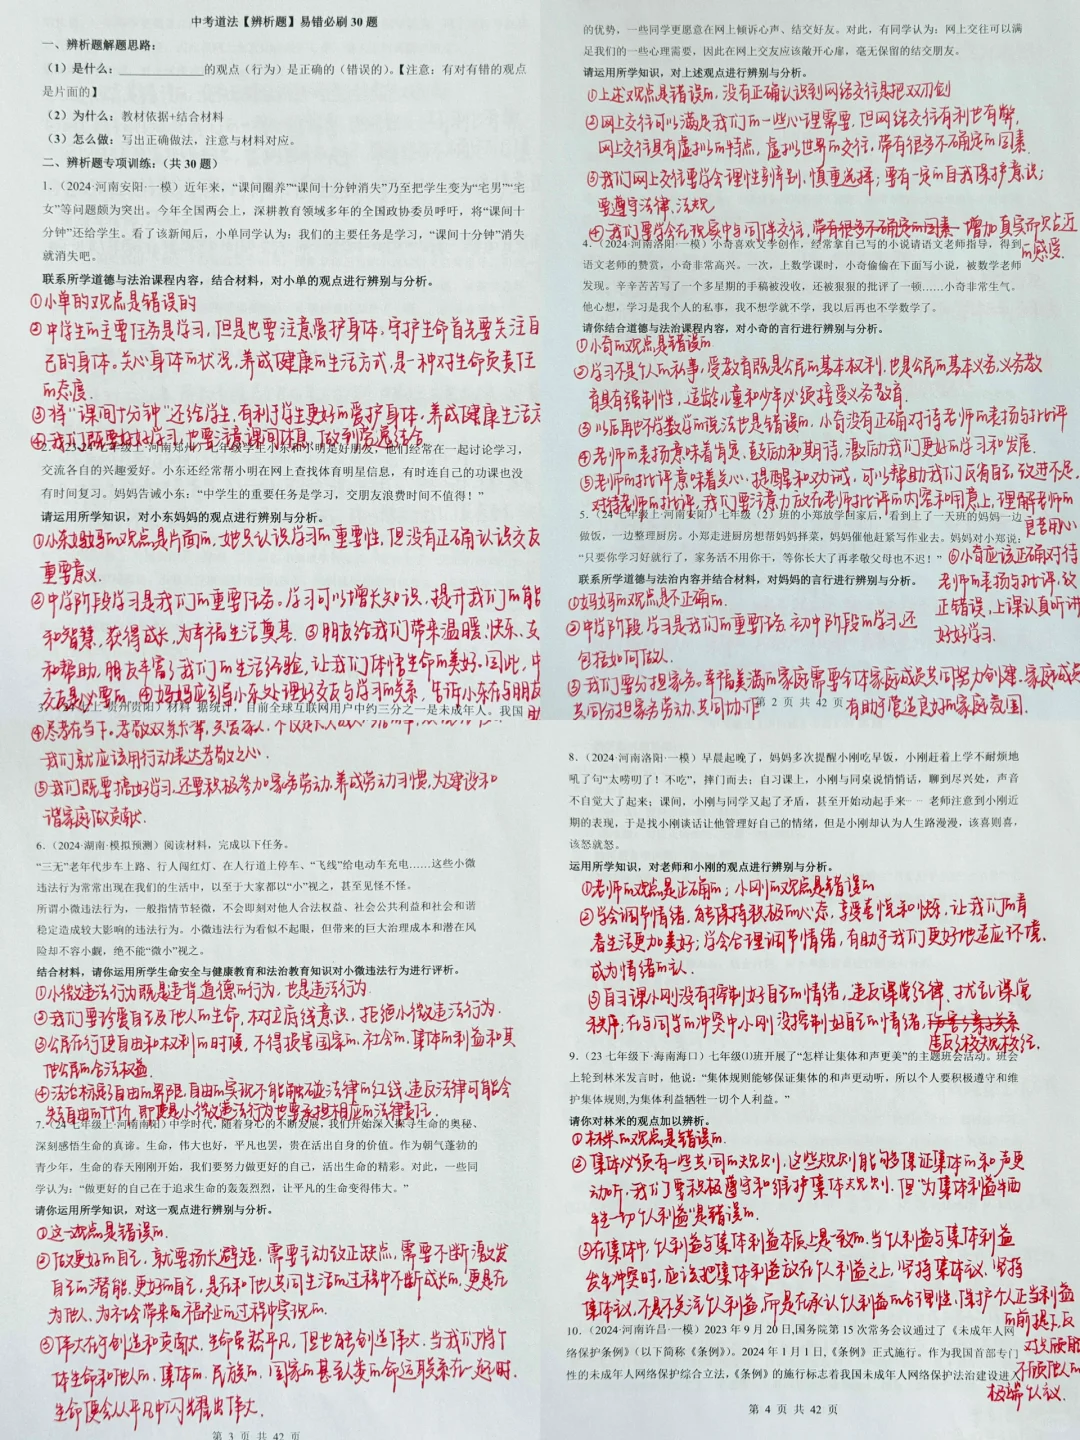 中考道法【辨析题】易错必刷30题
一、辨析题解题思路：
（1）是什么：____________的观点（行为）是正确的（错误的）。【注意：有对有错的观点
是片面的】
（2）为什么：教材依据+结合材料
（3）怎么做：写出正确做法，注意与材料对应。
二、辨析题专项训练：（共30题）
1.（2024·河南安阳·一模）近年来，“课间圈养”“课间十分钟消失”乃至把学生变为“宅男”“宅
女”等问题颇为突出。今年全国两会上，深耕教育领域多年的全国政协委员呼吁，将“课间十
分钟”还给学生。看了该新闻后，小单同学认为：我们的主要任务是学习，“课间十分钟”消失
就消失吧。
联系所学道德与法治课程内容，结合材料，对小单的观点进行辨别与分析。
①小单的观点是错误的
②中学生的主要任务是学习，但是也要注意爱护身体，守护生命首先要关注自
己的身体。关心身体的状况，养成健康的生活方式，是一种对生命负责任
的态度.
③将“课间十分钟”还给学生，有利于学生更好的爱护身体，养成健康生活方
④我们既要好好学习，也要注意课间休息，做到劳逸结合
2.（23-24七年级上·河南郑州）七年级学生小东和小明是好朋友，他们经常在一起讨论学习，
交流各自的兴趣爱好。小东还经常帮小明在网上查找体育明星信息，有时连自己的功课也没
有时间复习。妈妈告诫小东：“中学生的重要任务是学习，交朋友浪费时间不值得！”
请运用所学知识，对小东妈妈的观点进行辨别与分析。
①小东妈妈的观点是片面的，她只认识学习的重要性，但没有正确认识交友
重要意义.
②中学阶段学习是我们的重要任务。学习可以增长知识，提升我们的能
和智慧，获得成长，为幸福生活奠基. ③朋友给我们带来温暖、快乐、支
和帮助，朋友丰富了我们的生活经验，让我们体悟生命的美好。因此，中
交友是必要的。④妈妈应引导小东处理好交友与学习的关系，告诉小东在与朋友
贵州贵阳）材料 据统计，目前全球互联网用户中约三分之一是未成年人。我国
的优势，一些同学更愿意在网上倾诉心声、结交好友。对此，有同学认为：网上交往可以满
足我们的一些心理需要，因此在网上交友应该敞开心扉，毫无保留的结交朋友。
请运用所学知识，对上述观点进行辨别与分析。
①上述观点是错误的，没有正确认识到网络交往是把双刃剑
②网上交往可以满足我们的一些心理需要，但网络交往有利也有弊，
网上交往具有虚拟的特点，虚拟世界的交往，带有很多不确定的因素.
③我们网上交往要学会理性辨别，慎重选择；要有一定的自我保护意识；
要遵守法律、法规
④我们要学会在现实中与同伴交往，带有很多不确定的因素 增加真实而贴近
的感受.
4.（2024·河南洛阳·一模）小奇喜欢文学创作，经常拿自己写的小说请语文老师指导，得到
语文老师的赞赏，小奇非常高兴。一次，上数学课时，小奇偷偷在下面写小说，被数学老师
发现。辛辛苦苦写了一个多星期的手稿被没收，还被狠狠的批评了一顿……小奇非常生气。
他心想，学习是我个人的私事，我不想学就不学，我以后再也不学数学了。
请你结合道德与法治课程内容，对小奇的言行进行辨别与分析。
①小奇的观点是错误的
②学习不是个人的私事，受教育既是公民的基本权利，也是公民的基本义务，义务教
育具有强制性，适龄儿童和少年必须接受义务教育.
③以后再也不学数学的说法也是错误的. 小奇没有正确对待老师的表扬与批评
④老师的表扬意味着肯定、鼓励和期待，激励我们更好的学习和发展.
⑤老师的批评意味着关心、提醒和劝诫，可以帮助我们反省自己，改进不足，
对待老师的批评，我们要注意力放在老师批评的内容和用意上，理解老师的
良苦用心
⑥小奇应该正确对待
老师的表扬与批评，改
正错误，上课认真听讲
好好学习.
5.（24七年级上·河南安阳）七年级（2）班的小郑放学回家后，看到上了一天班的妈妈一边
做饭，一边整理厨房。小郑走进厨房想帮妈妈择菜，妈妈催他赶紧写作业去。妈妈对小郑说：
“只要你学习好就行了，家务活不用你干，等你长大了再孝敬父母也不迟！”
联系所学道德与法治内容并结合材料，对妈妈的言行进行辨别与分析。
①妈妈的观点是不正确的.
②中学阶段，学习是我们的重要任务. 初中阶段的学习，还
包括如何做人.
③我们要分担家务。幸福美满的家庭需要全体家庭成员共同努力创建. 家庭成员
共同分担家务劳动，共同协作 有助于营造良好的家庭氛围.
第 2 页 共 42 页
④尽孝在当下。孝敬双亲长辈，关爱家人
我们就应该用行动表达孝敬之心.
⑤我们既要搞好学习，还要积极参加家务劳动，养成劳动习惯，为建设和
谐家庭做贡献.
6.（2024·湖南·模拟预测）阅读材料，完成以下任务。
“三无”老年代步车上路、行人闯红灯、在人行道上停车、“飞线”给电动车充电……这些小微
违法行为常常出现在我们的生活中，以至于大家都以“小”视之，甚至见怪不怪。
所谓小微违法行为，一般指情节轻微，不会即刻对他人合法权益、社会公共利益和社会和谐
稳定造成较大影响的违法行为。小微违法行为看似不起眼，但带来的巨大治理成本和潜在风
险却不容小觑，绝不能“微小”视之。
结合材料，请你运用所学生命安全与健康教育和法治教育知识对小微违法行为进行评析。
①小微违法行为既是违背道德的行为，也是违法行为.
②我们要珍爱自己及他人的生命，树立底线意识，拒绝小微违法行为.
③公民在行使自由和权利的时候，不得损害国家的、社会的、集体的利益和其
他公民的合法权益.
④法治标志自由的界限，自由的实现不能触碰法律的红线，违反法律可能会
失去自由的代价，即便是小微违法行为也要承担相应的法律责任.
7.（24七年级上·河南南阳）中学时代，随着身心的不断发展，我们开始深入探寻生命的奥秘、
深刻感悟生命的真谛。生命，伟大也好，平凡也罢，贵在活出自身的价值。作为朝气蓬勃的
青少年，生命的春天刚刚开始，我们要努力做更好的自己，活出生命的精彩。对此，一些同
学认为：“做更好的自己在于追求生命的轰轰烈烈，让平凡的生命变得伟大。”
请你运用所学知识，对这一观点进行辨别与分析。
①这一观点是错误的.
②做更好的自己，就要扬长避短，需要主动改正缺点，需要不断激发
自己的潜能. 更好的自己，是在和他人共同生活的过程中不断成长的，更是在
为他人、为社会带来的福祉的过程中实现的.
③伟大在于创造和贡献. 生命虽然平凡，但也能创造伟大. 当我们将个
体生命和他人的、集体的、民族的、国家的甚至人类的命运联系在一起时，
生命便会从平凡中闪耀出伟大.
第 3 页 共 42 页
8.（2024·河南洛阳·一模）早晨起晚了，妈妈多次提醒小刚吃早饭，小刚赶着上学不耐烦地
吼了句“太唠叨了！不吃”，摔门而去；自习课上，小刚与同桌说悄悄话，聊到尽兴处，声音
不自觉大了起来；课间，小刚与同学又起了矛盾，甚至开始动起手来……老师注意到小刚近
期的表现，于是找小刚谈话让他管理好自己的情绪，但是小刚却认为人生路漫漫，该喜则喜，
该怒就怒。
运用所学知识，对老师和小刚的观点进行辨别与分析。
①老师的观点是正确的；小刚的观点是错误的
②学会调节情绪，能够保持积极的心态，享受喜悦和快乐，让我们的青
春生活更加美好；学会合理调节情绪，有助于我们更好地适应环境，
成为情绪的主人.
③自习课小刚没有控制好自己的情绪，违反课堂纪律、扰乱课堂
秩序；在与同学的冲突中小刚没控制好自己的情绪，伤害了亲子关系
违反了校规校纪.
9.（23七年级下·海南海口）七年级⑴班开展了“怎样让集体和声更美”的主题班会活动。班会
上轮到林米发言时，他说：“集体规则能够保证集体的和声更动听，所以个人要积极遵守和维
护集体规则,为集体利益牺牲一切个人利益。”
请你对林米的观点加以辨析。
①林米的观点是错误的.
②集体必须有一些共同的规则，这些规则能够保证集体的和声更
动听，我们要积极遵守和维护集体规则. 但“为集体利益牺
牲一切个人利益”是错误的.
③在集体中，个人利益与集体利益本质上是一致的. 当个人利益与集体利益
发生冲突时，应该把集体利益放在个人利益之上，坚持集体主义. 坚持
集体主义，不是不关注个人利益，而是在承认个人利益的合理性、保护个人正当利益
的前提下，反
对只顾自己
不顾他人的
极端个人主义.
10.（2024·河南许昌·一模）2023年9月20日,国务院第15次常务会议通过了《未成年人网
络保护条例》（以下简称《条例》）。2024年1月1日,《条例》正式施行。作为我国首部专门
性的未成年人网络保护综合立法,《条例》的施行标志着我国未成年人网络保护法治建设进入
第 4 页 共 42 页